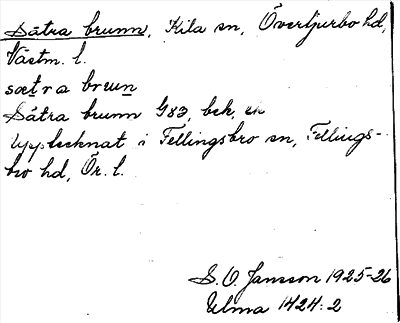 Sätra brunn, Kila sn, Övertjurbo hd,
Västm. l.
sætra brun
Sätra brunn G83, bek, en
Upptecknat i Fellingsbro sn, Fellings-
bro hd, Ör. l.
S. O. Jansson 1925-26
Ulma 1424:2